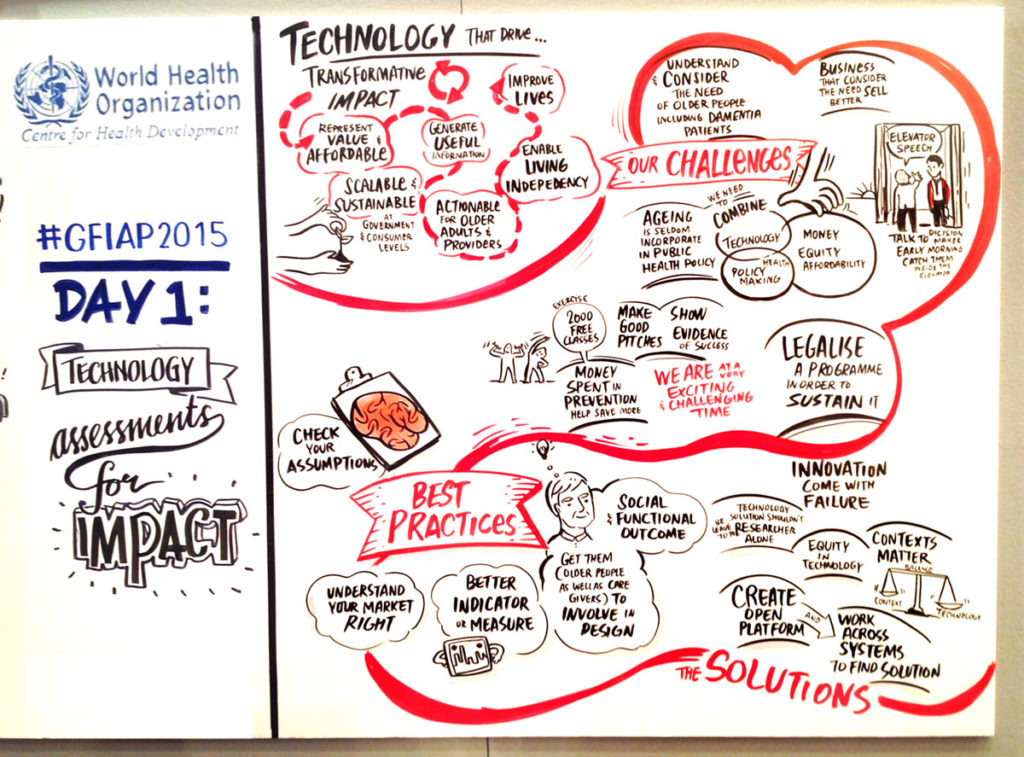 World Health
Organization
Centre for Health Development
#GFIAP2015
DAY 1:
TECHNOLOGY
assessments
for
IMPACT
TECHNOLOGY THAT DRIVE...
TRANSFORMATIVE
IMPACT
REPRESENT
VALUE &
AFFORDABLE
GENERATE
USEFUL
INFORMATION
IMPROVE
LIVES
ENABLE
LIVING
INDEPEDENCY
SCALABLE &
SUSTAINABLE
AT
GOVERNMENT
& CONSUMER
LEVELS
ACTIONABLE
FOR OLDER
ADULTS &
PROVIDERS
UNDERSTAND
& CONSIDER
THE NEED
OF OLDER PEOPLE
INCLUDING DAMENTIA
PATIENTS
BUSINESS
THAT CONSIDER
THE NEED SELL
BETTER
OUR CHALLENGES
ELEVATOR
SPEECH
TALK TO DECISION
MAKER
EARLY MORNING
CATCH THEM
INSIDE THE
ELEVATOR
AGEING
IS SELDOM
INCORPORATE
IN PUBLIC
HEALTH POLICY
WE NEED
TO
COMBINE
TECHNOLOGY
HEALTH
POLICY
MAKING
MONEY
EQUITY
AFFORDABILITY
EXERCISE
2000
FREE
CLASSES
MAKE
GOOD
PITCHES
SHOW
EVIDENCE
OF SUCCESS
MONEY
SPENT IN
PREVENTION
HELP SAVE MORE
WE ARE AT A
VERY
EXCITING
& CHALLENGING
TIME
LEGALISE
A PROGRAMME
IN ORDER TO
SUSTAIN IT
CHECK
YOUR
ASSUMPTIONS
BEST
PRACTICES
SOCIAL
& FUNCTIONAL
OUTCOME
UNDERSTAND
YOUR MARKET
RIGHT
BETTER
INDICATOR
OR MEASURE
GET THEM
(OLDER PEOPLE
AS WELL AS CARE
GIVERS) TO
INVOLVE IN
DESIGN
INNOVATION
COME WITH
FAILURE
TECHNOLOGY
SOLUTION SHOULDN'T
BE LEAVE
TO THE RESEARCHER
ALONE
EQUITY
IN
TECHNOLOGY
CONTEXTS
MATTER
BALANCE
CONTEXT
TECHNOLOGY
CREATE
OPEN
PLATFORM
AND
WORK
ACROSS
SYSTEMS
TO FIND SOLUTION
THE SOLUTIONS